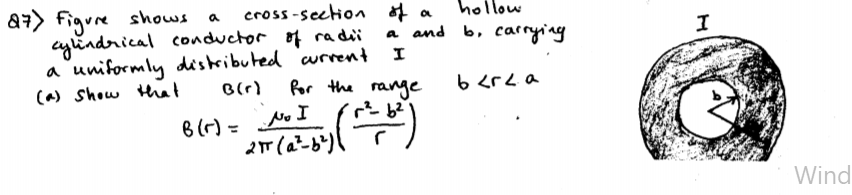 Q7) Figure shows a cross-section of a hollow
cylindrical conductor of radii a and b, carrying
a uniformly distributed current I
(a) Show that B(r) for the range b < r < a
B(r) = μ₀ I / 2π (a² - b²) ( r² - b² / r )
I
b
Wind